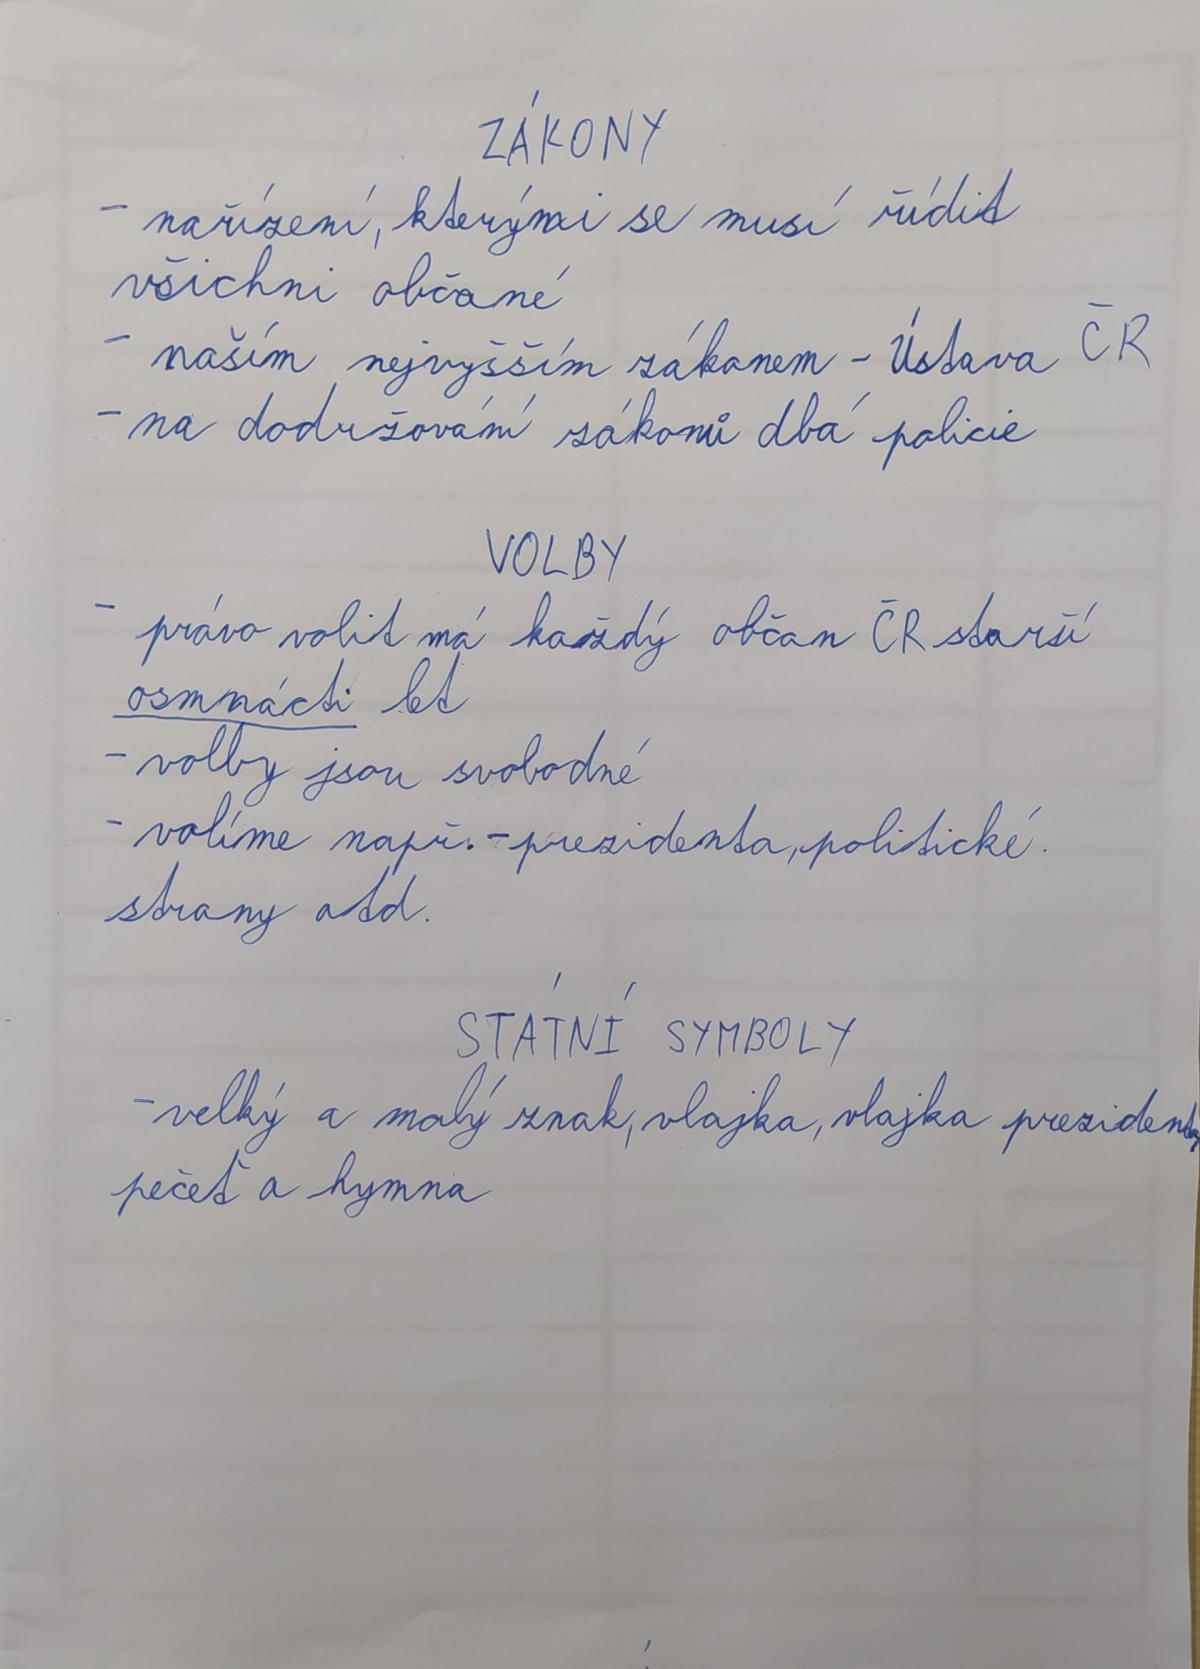 ZÁKONY
- nařízení, kterými se musí řídit
všichni občané
- naším nejvyšším zákonem - Ústava ČR
- na dodržování zákonů dbá policie
VOLBY
- právo volit má každý občan ČR starší
osmnácti let
- volby jsou svobodné
- volíme např. - prezidenta, politické
strany atd.
STÁTNÍ SYMBOLY
- velký a malý znak, vlajka, vlajka prezidenta,
pečeť a hymna